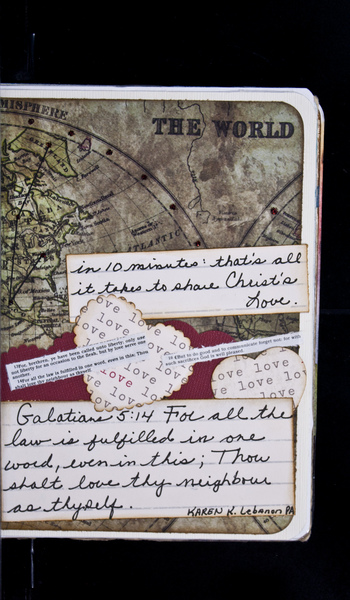 MISPHERE
THE WORLD
ATLANTIC
in 10 minutes: that's all
it takes to share Christ's
Love.
love love love
love love
13 For, brethren, ye have been called unto liberty; only use
not liberty for an occasion to the flesh, but by love serve one
another.
14 For all the law is fulfilled in one word, even in this: Thou
shalt love thy neighbour as thyself.
16 But to do good and to communicate forget not: for with
such sacrifices God is well pleased.
Galatians 5:14 For all the
law is fulfilled in one
word, even in this; Thou
shalt love thy neighbour
as thyself.
KAREN K. Lebanon PA